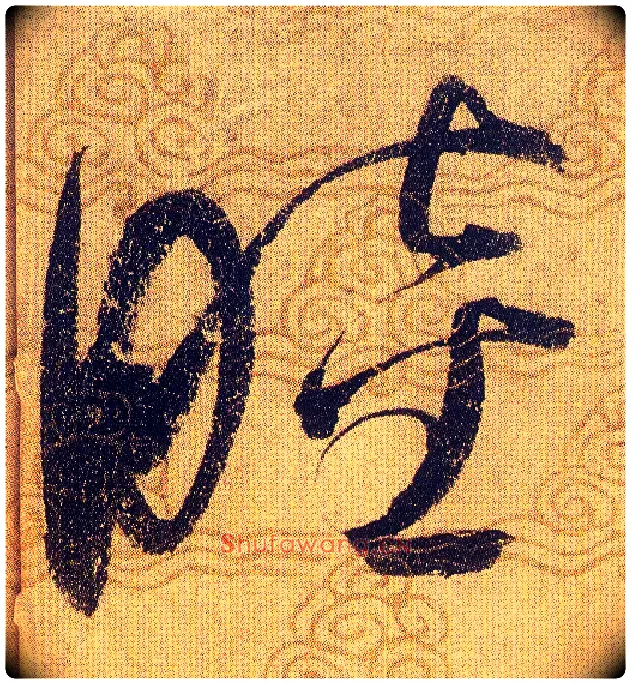 睦
Shufawang.Cn